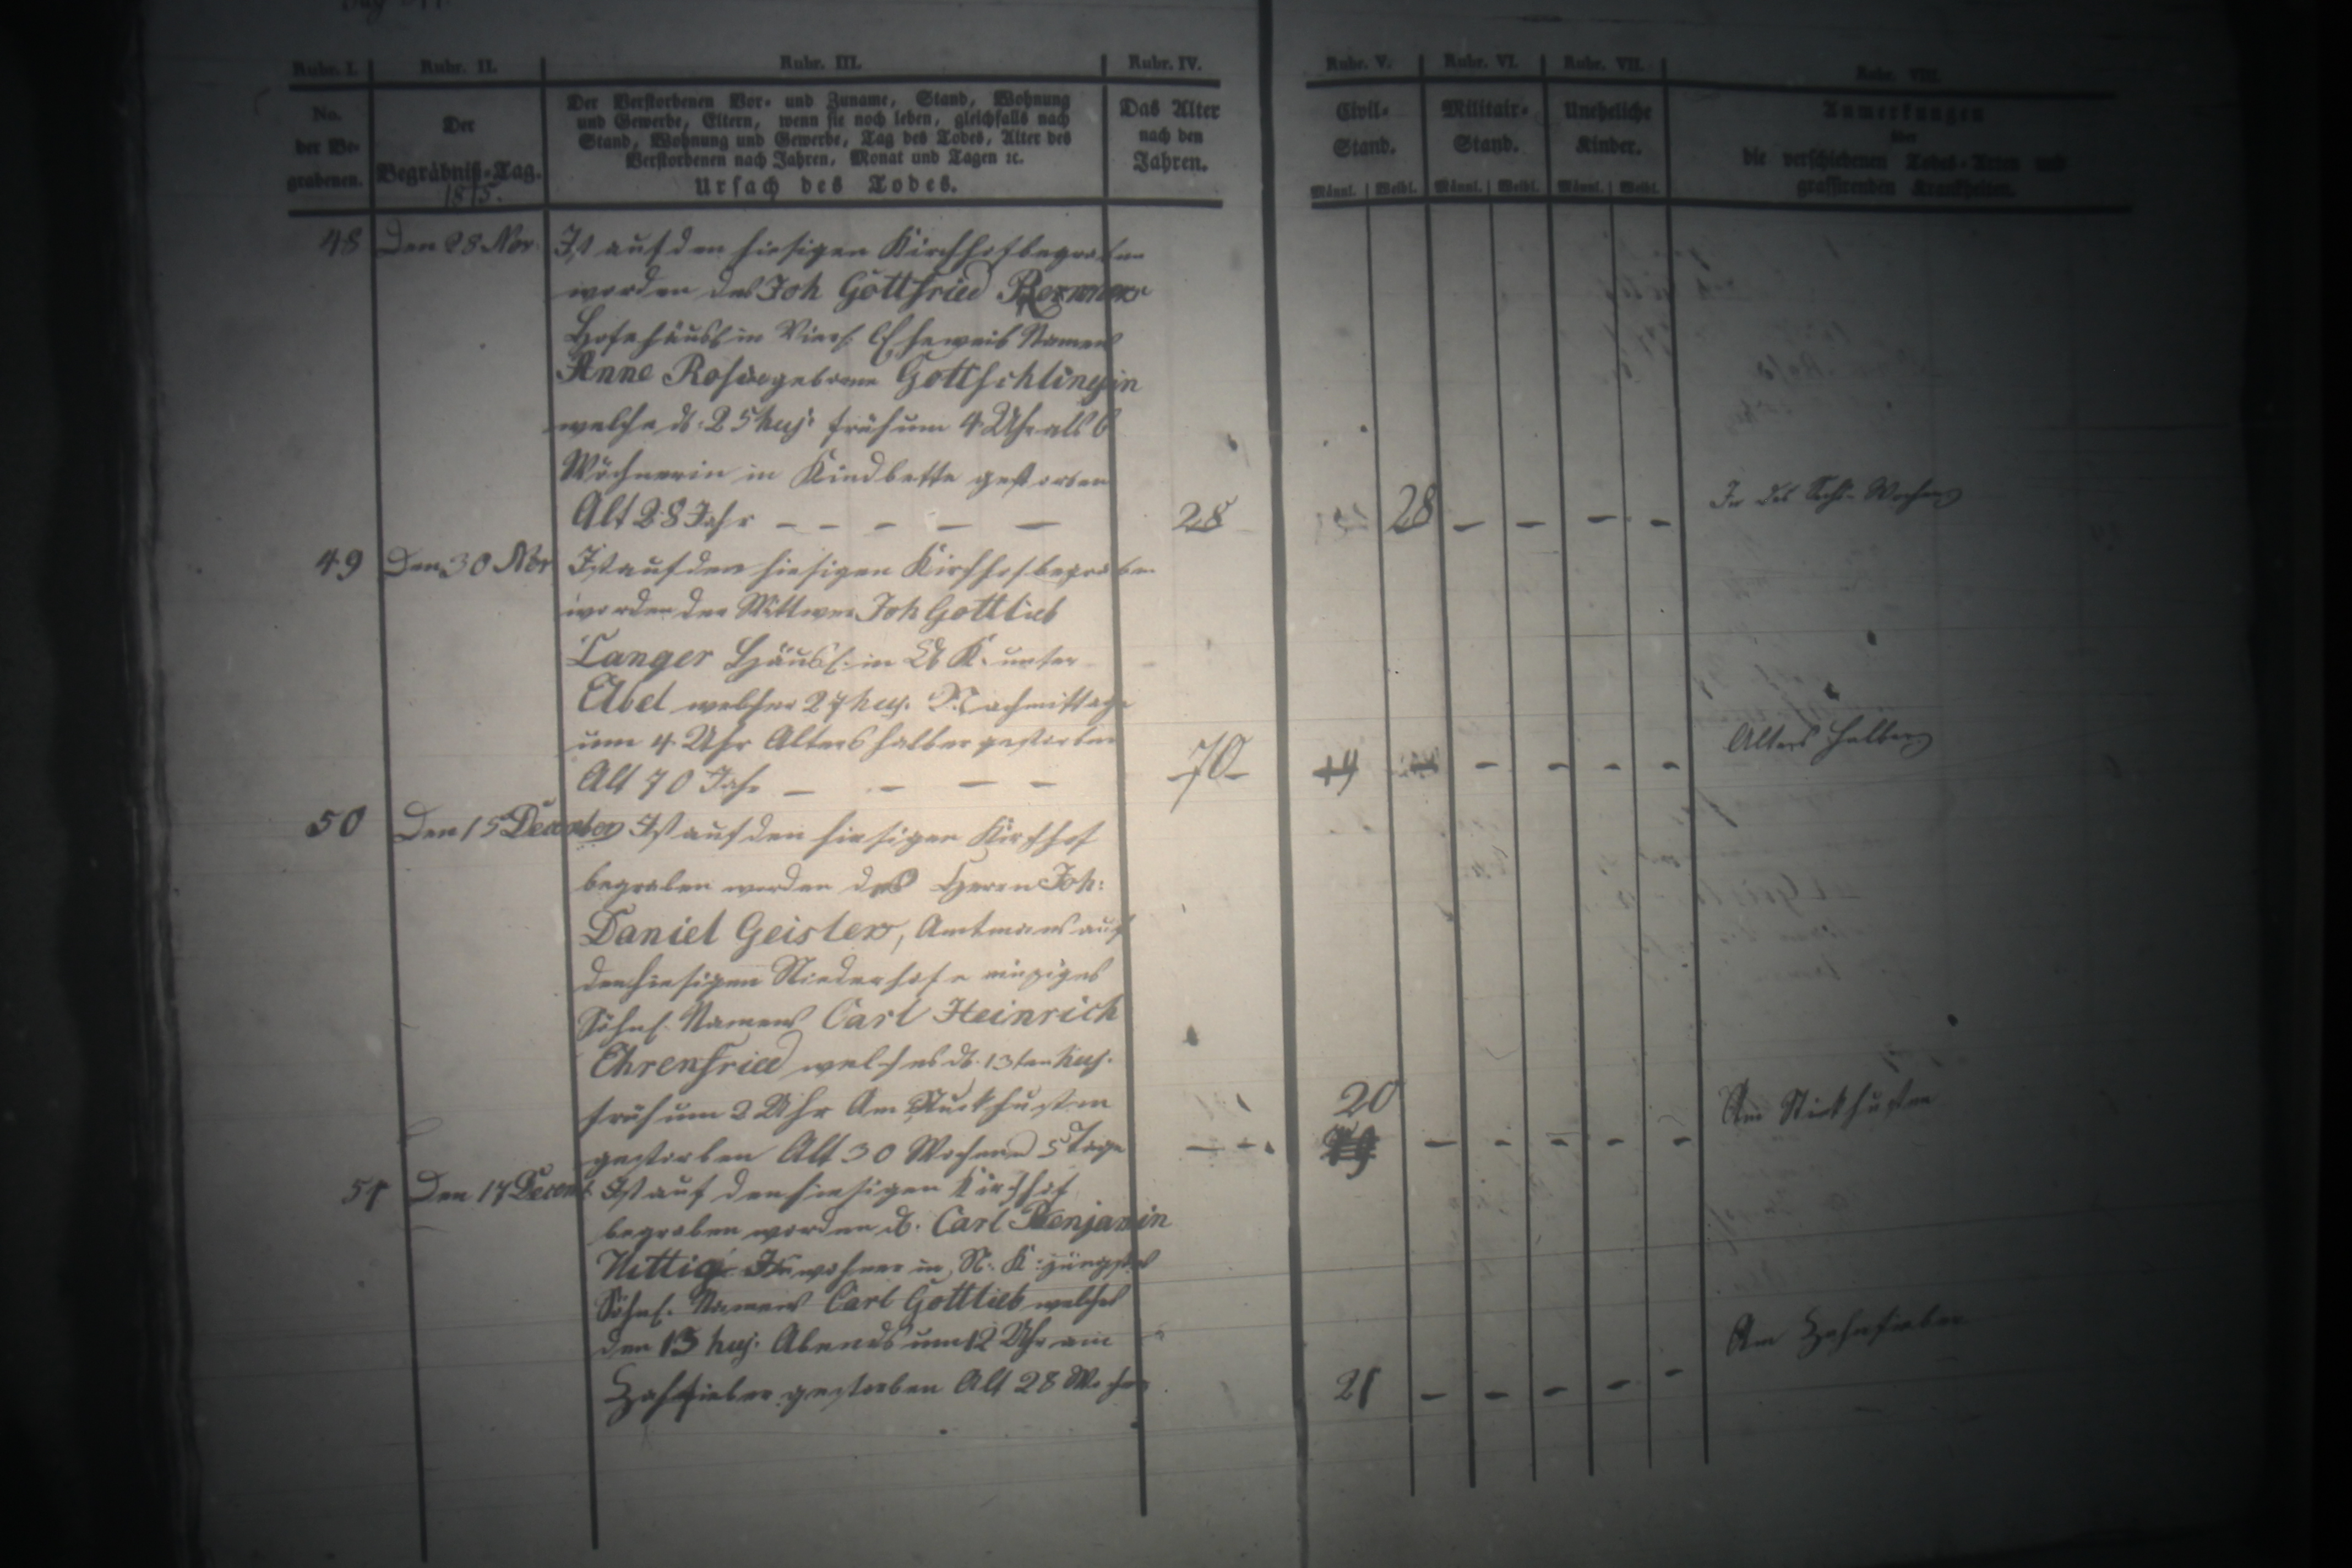 Rubr. I. Rubr. II. Rubr. III. Rubr. IV. Rubr. V. Rubr. VI. Rubr. VII. Rubr. VIII.
No. der Be- grabenen.
Der Begräbniß-Tag. 1815.
Der Verstorbenen Vor- und Zuname, Stand, Wohnung
und Gewerbe, Eltern, wenn sie noch leben, gleichfalls nach
Stand, Wohnung und Gewerbe, Tag des Todes, Alter des
Verstorbenen nach Jahren, Monat und Tagen ꝛc.
Ursach des Todes.
Das Alter nach den Jahren.
Civil- Stand. Männl. Weibl.
Militair- Stand. Männl. Weibl.
Uneheliche Kinder. Männl. Weibl.
Anmerkungen
über
die verschiedenen Todes-Arten und
grassirenden Krankheiten.
48 Den 28 Nov. Ist auf den hiesigen Kirchhof begraben
worden des Joh Gottfried
Hofehäusl. in Eheweib Namens
Anne Rosine geborene Gottschlingin
welche d. 25 huj. früh um 4 Uhr als 6
Wöchnerin in Kindbette gestorben
Alt 28 Jahr – – – – – 28 28 – – – – In den Sechs Wochen
49 Den 30 Nov Ist auf den hiesigen Kirchhof begraben
worden der Wittwer Joh Gottlieb
Langer Häusl. in K. unter
Abel welcher 27 huj. Nachmittags
um 4 Uhr Alters halber gestorben
Alt 70 Jahr – – – – 70 19 – – – – Alters halber
50 Den 15 December Ist auf den hiesigen Kirchhof
begraben worden des Herrn Joh:
Daniel Geisler, Amtmanns auf
den hiesigen Niederhofe einziges
Söhnl. Namens Carl Heinrich
Ehrenfried welches d. 13ten huj.
früh um 2 Uhr Am Stickhusten
gestorben Alt 30 Wochen 5 Tage – – 20 – – – – – Am Stickhusten
51 Den 17 Decemb Ist auf den hiesigen Kirchhof
begraben worden d. Carl Benjamin
Wittig Inwohner in N. K. jüngstes
Söhnl. Namens Carl Gottlieb welches
den 13 huj. Abends um 12 Uhr am
Zahnfieber gestorben Alt 28 Wochen 21 – – – – – Am Zahnfieber